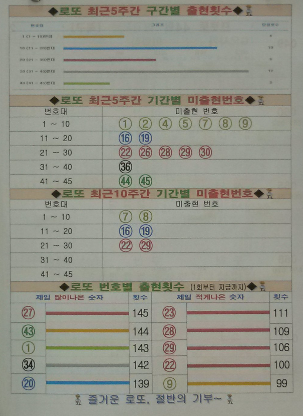 ◆로또 최근5주간 구간별 출현횟수◆
◆로또 최근5주간 기간별 미출현번호◆
번호대 미출현 번호
1 ~ 10 ① ② ④ ⑤ ⑦ ⑧ ⑨
11 ~ 20 ⑯ ⑲
21 ~ 30 ㉒ ㉖ ㉘ ㉙ ㉚
31 ~ 40 ㊱
41 ~ 45 ㊹ ㊺
◆로또 최근10주간 기간별 미출현번호◆
번호대 미출현 번호
1 ~ 10 ⑦ ⑧
11 ~ 20 ⑯ ⑲
21 ~ 30 ㉒ ㉙
31 ~ 40
41 ~ 45
◆로또 번호별 출현횟수 (1회부터 지금까지)◆
제일 많이나온 숫자 횟수 제일 적게나온 숫자 횟수
㉗ 145 ㉓ 111
㊸ 144 ㉘ 109
① 143 ㉙ 106
㉞ 142 ㉒ 100
⑳ 139 ⑨ 99
즐거운 로또, 절반의 기부~